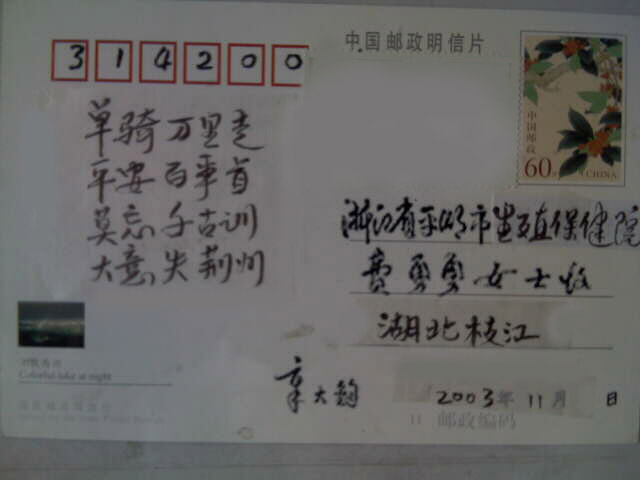 314200
中国邮政明信片
中国邮政
60分
CHINA
单骑万里走
平安百事首
莫忘千古训
大意失荆州
浙江省平湖市生殖保健院
费勇勇女士收
湖北枝江
章大钧
2003年11月 日
Colorful lake at night
邮政编码